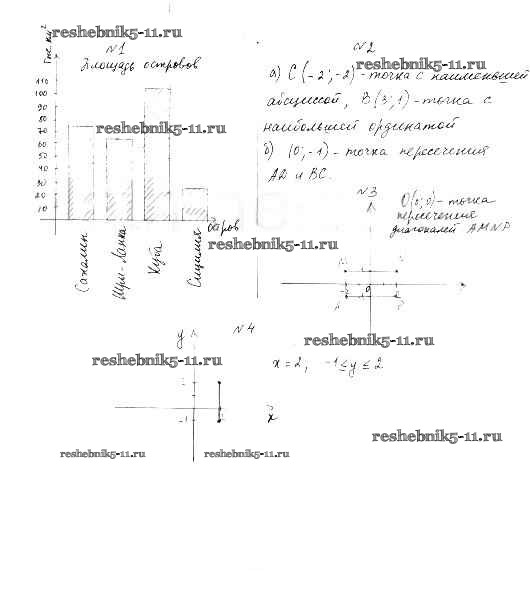 reshebnik5-11.ru
N1
Площадь островов
Тыс. км²
110
100
90
80
70
60
50
40
30
20
10
reshebnik5-11.ru
Остров
Сахалин
Шри-Ланка
Куба
Сицилия
N2
reshebnik5-11.ru
а) C (-2; -2) - точка с наименьшей
абсциссой, B(3; 1) - точка с
наибольшей ординатой
б) (0; -1) - точка пересечения
AD и BC.
N3
O(0; 0) - точка
пересечения
диагоналей AMNP
reshebnik5-11.ru
-2
0
reshebnik5-11.ru
N4
y
reshebnik5-11.ru
x = 2, -1 ≤ y ≤ 2
-1
x
reshebnik5-11.ru
reshebnik5-11.ru
reshebnik5-11.ru